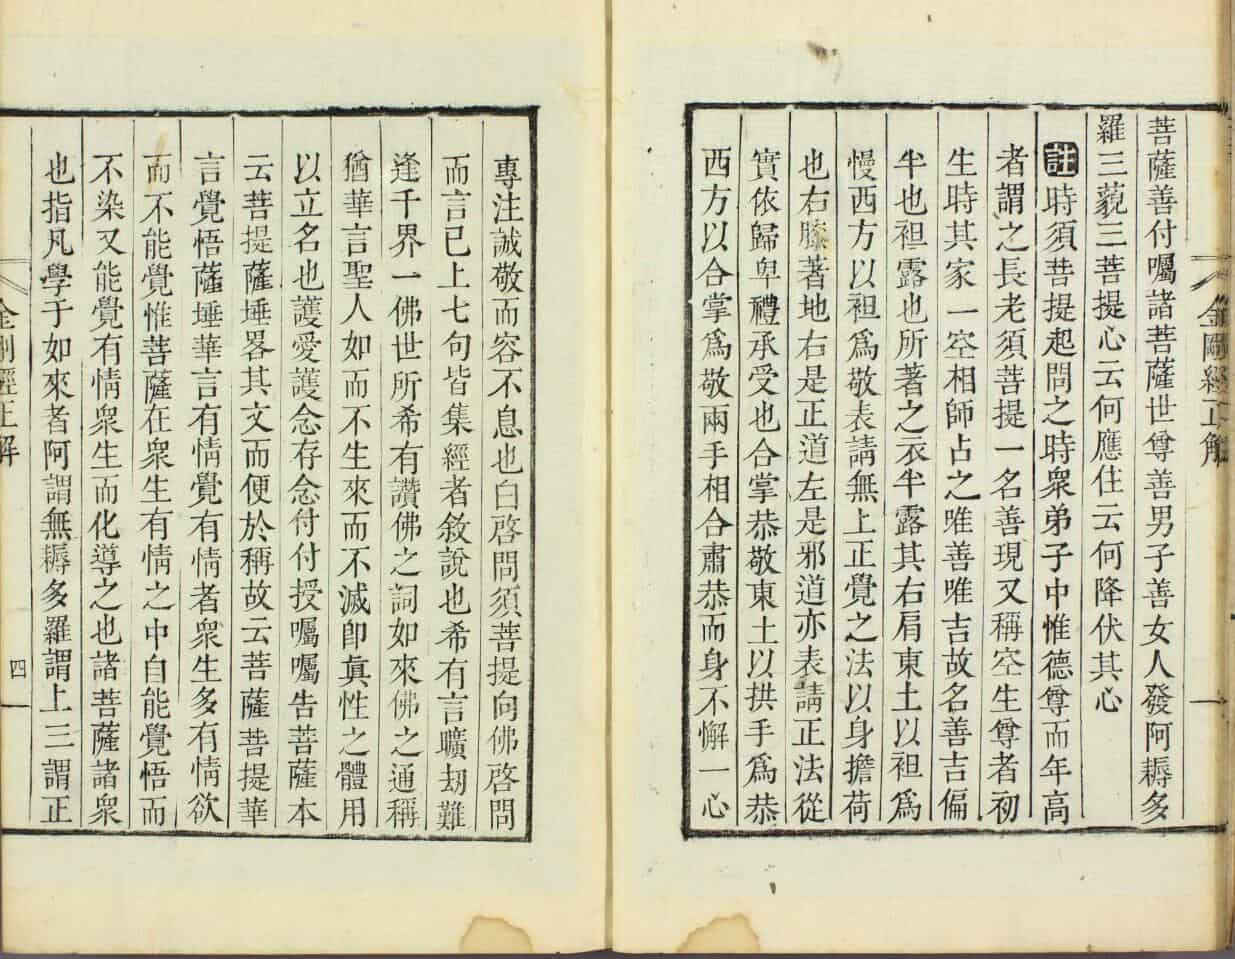 菩薩善付囑諸菩薩世尊善男子善女人發阿耨多
羅三藐三菩提心云何應住云何降伏其心
註時須菩提起問之時衆弟子中惟德尊而年高
者謂之長老須菩提一名善現又稱空生尊者初
生時其家一空相師占之唯善唯吉故名善吉偏
半也袒露也所著之衣半露其右肩東土以袒爲
慢西方以袒爲敬表請無上正覺之法以身擔荷
也右膝著地右是正道左是邪道亦表請正法從
實依歸卑禮承受也合掌恭敬東土以拱手爲恭
西方以合掌爲敬兩手相合肅恭而身不懈一心
金剛經正解
專注誠敬而容不息也白啓問須菩提向佛啓問
而言已上七句皆集經者敘說也希有言曠刼難
逢千界一佛世所希有讚佛之詞如來佛之通稱
猶華言聖人如而不生來而不滅卽眞性之體用
以立名也護愛護念存念付付授囑囑告菩薩本
云菩提薩埵畧其文而便於稱故云菩薩菩提華
言覺悟薩埵華言有情覺有情者衆生多有情欲
而不能覺惟菩薩在衆生有情之中自能覺悟而
不染又能覺有情衆生而化導之也諸菩薩諸衆
也指凡學于如來者阿謂無耨多羅謂上三謂正
金剛經正解
四